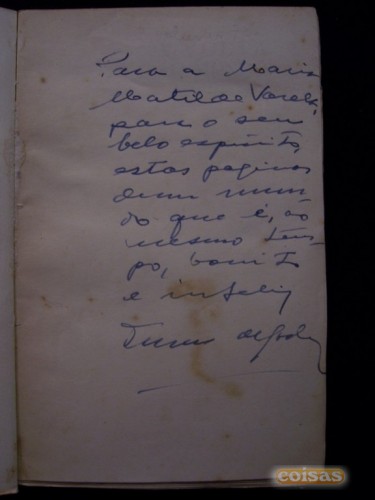 Para a Maria
Matilde Varela,
para o seu
belo espírito,
estas paginas
dum mun
do que é, ao
mesmo tem-
po, bonito
e infeliz
coisas